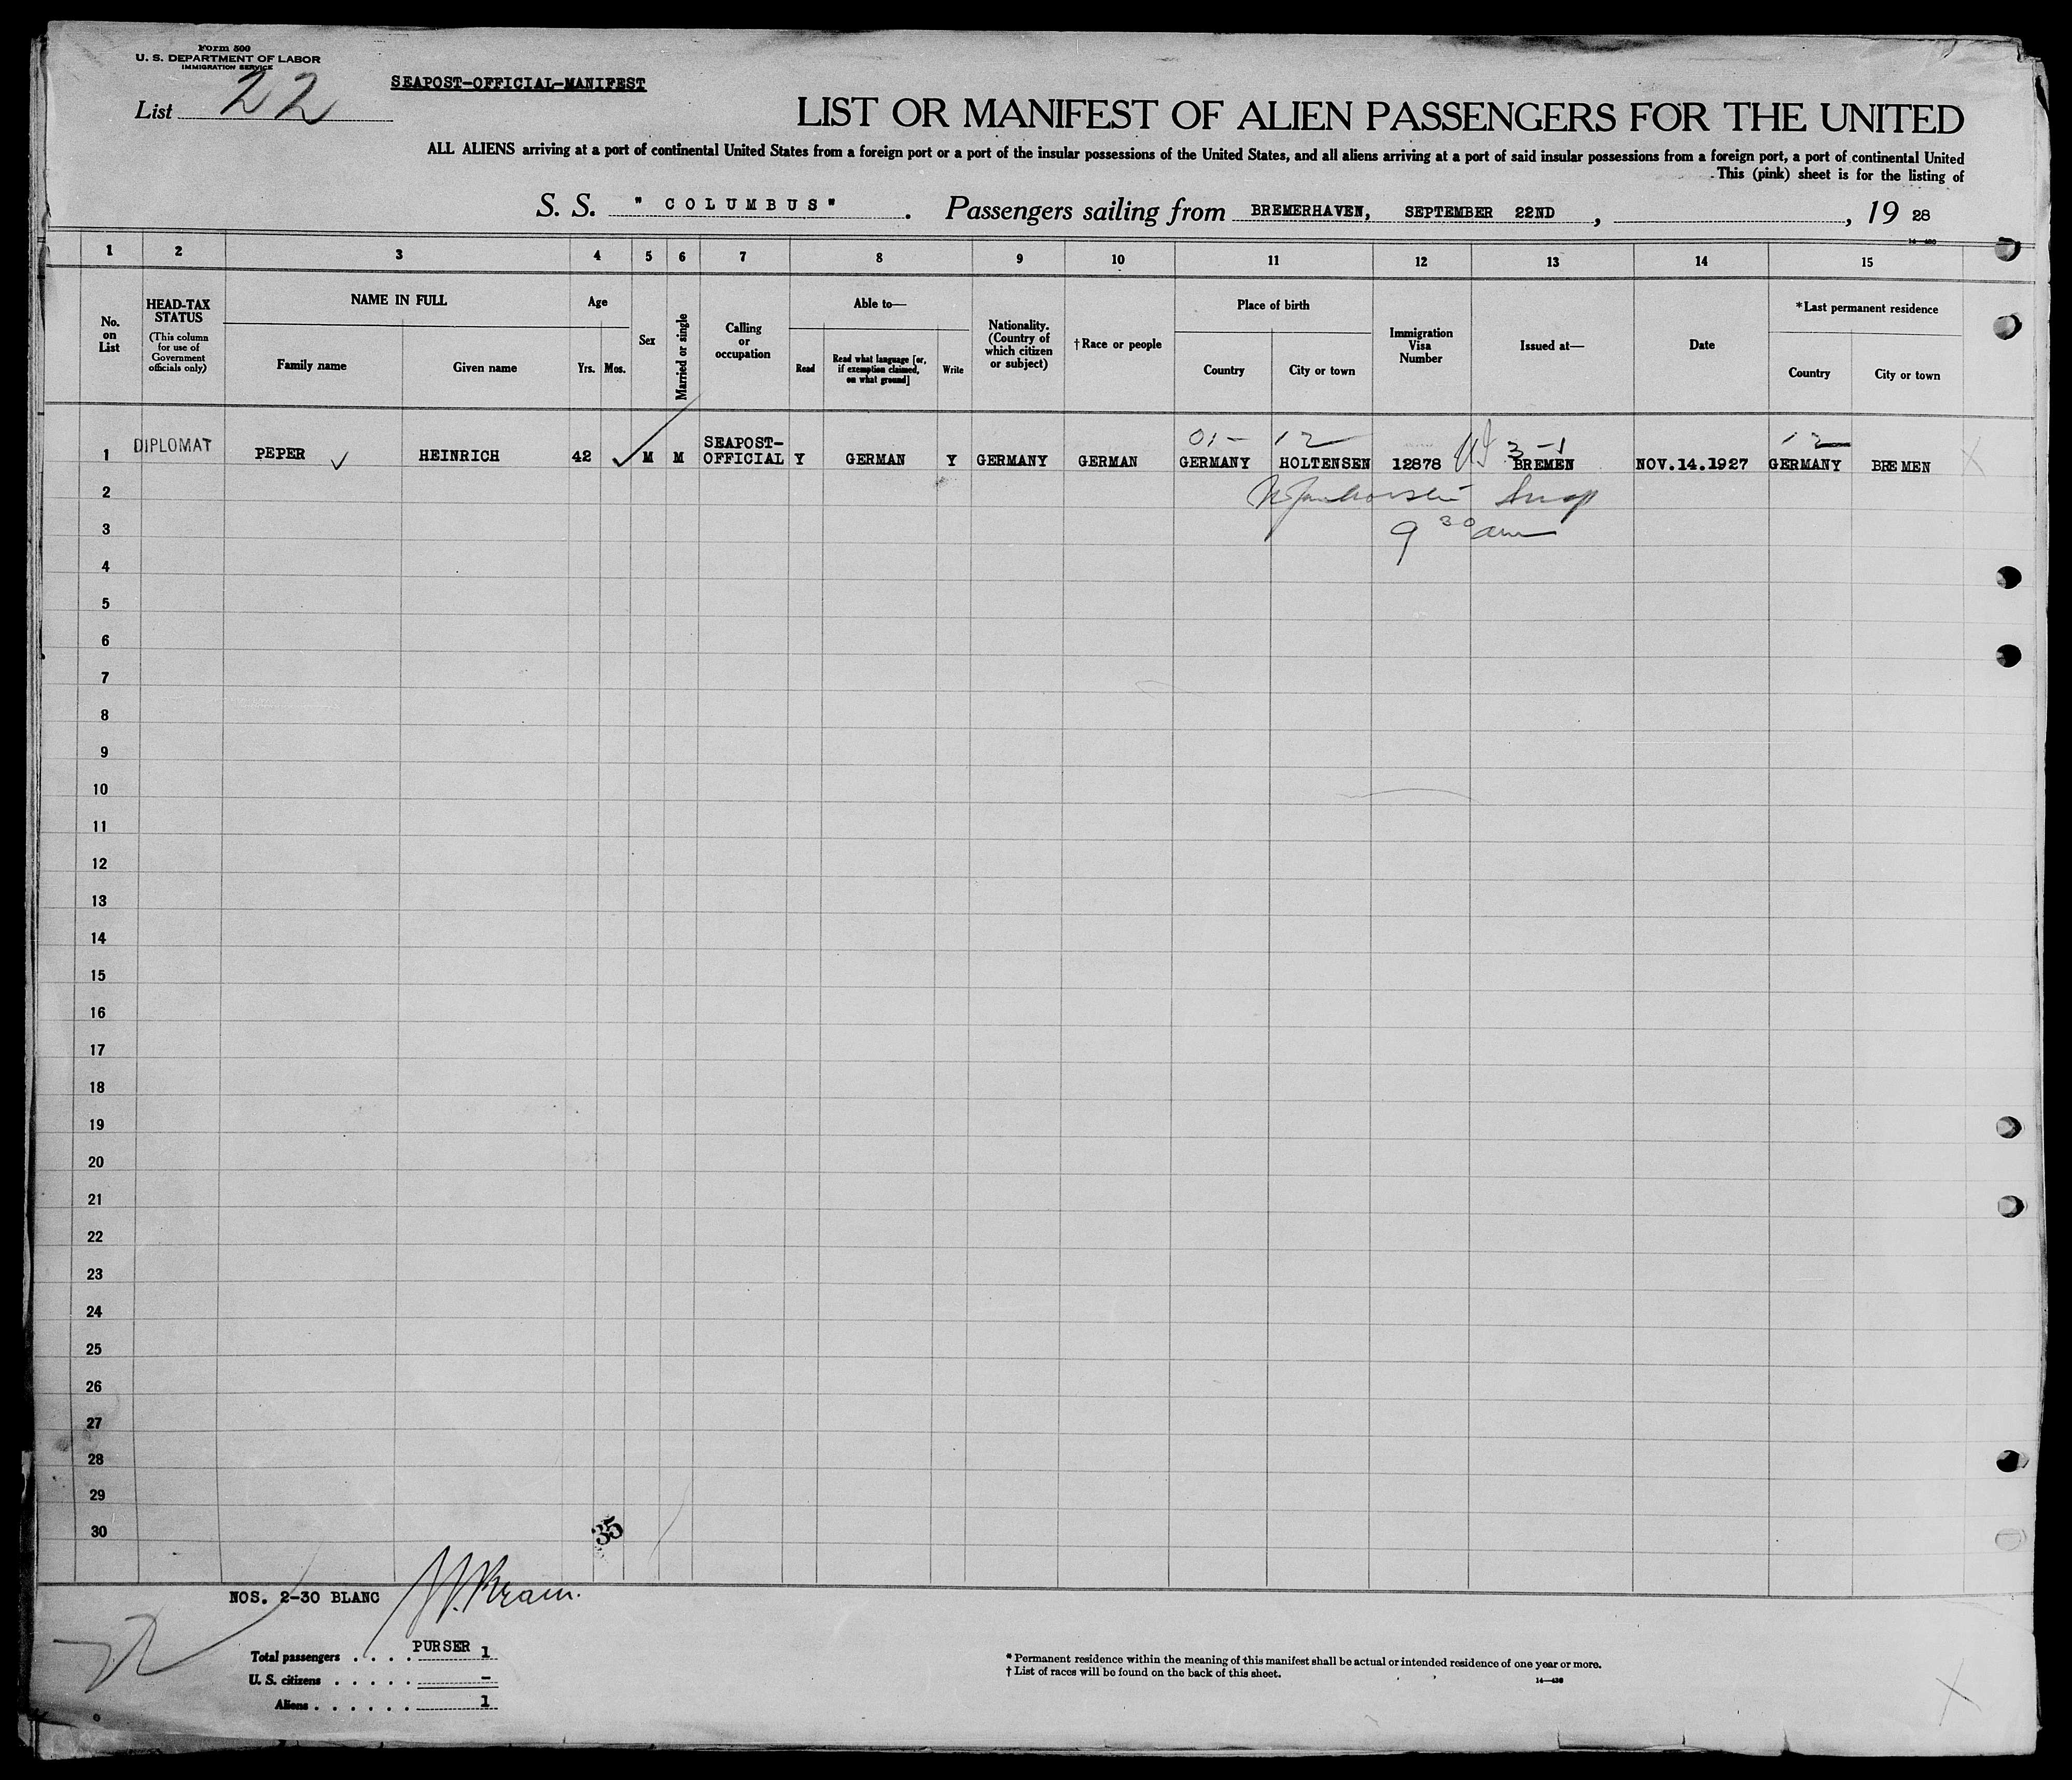 Form 500
U. S. DEPARTMENT OF LABOR
IMMIGRATION SERVICE
SEAPOST-OFFICIAL-MANIFEST
List 22
LIST OR MANIFEST OF ALIEN PASSENGERS FOR THE UNITED
ALL ALIENS arriving at a port of continental United States from a foreign port or a port of the insular possessions of the United States, and all aliens arriving at a port of said insular possessions from a foreign port, a port of continental United
This (pink) sheet is for the listing of
S. S. "COLUMBUS". Passengers sailing from BREMERHAVEN, SEPTEMBER 22ND, , 19 28
1 2 3 4 5 6 7 8 9 10 11 12 13 14 15
No. on List
HEAD-TAX STATUS
(This column for use of Government officials only)
NAME IN FULL
Family name Given name
Age
Yrs. Mos.
Sex
Married or single
Calling or occupation
Able to—
Read
Read what language [or, if exemption claimed, on what ground]
Write
Nationality. (Country of which citizen or subject)
†Race or people
Place of birth
Country City or town
Immigration Visa Number
Issued at—
Date
*Last permanent residence
Country City or town
01- 12 3-1 12
1 DIPLOMAT PEPER HEINRICH 42 M M SEAPOST-OFFICIAL Y GERMAN Y GERMANY GERMAN GERMANY HOLTENSEN 12878 BREMEN NOV.14.1927 GERMANY BREMEN
2
3 9 30 am
4
5
6
7
8
9
10
11
12
13
14
15
16
17
18
19
20
21
22
23
24
25
26
27
28
29
30
35
NOS. 2-30 BLANC
PURSER
Total passengers . . . . 1
U. S. citizens . . . . . -
Aliens . . . . . . 1
* Permanent residence within the meaning of this manifest shall be actual or intended residence of one year or more.
† List of races will be found on the back of this sheet.